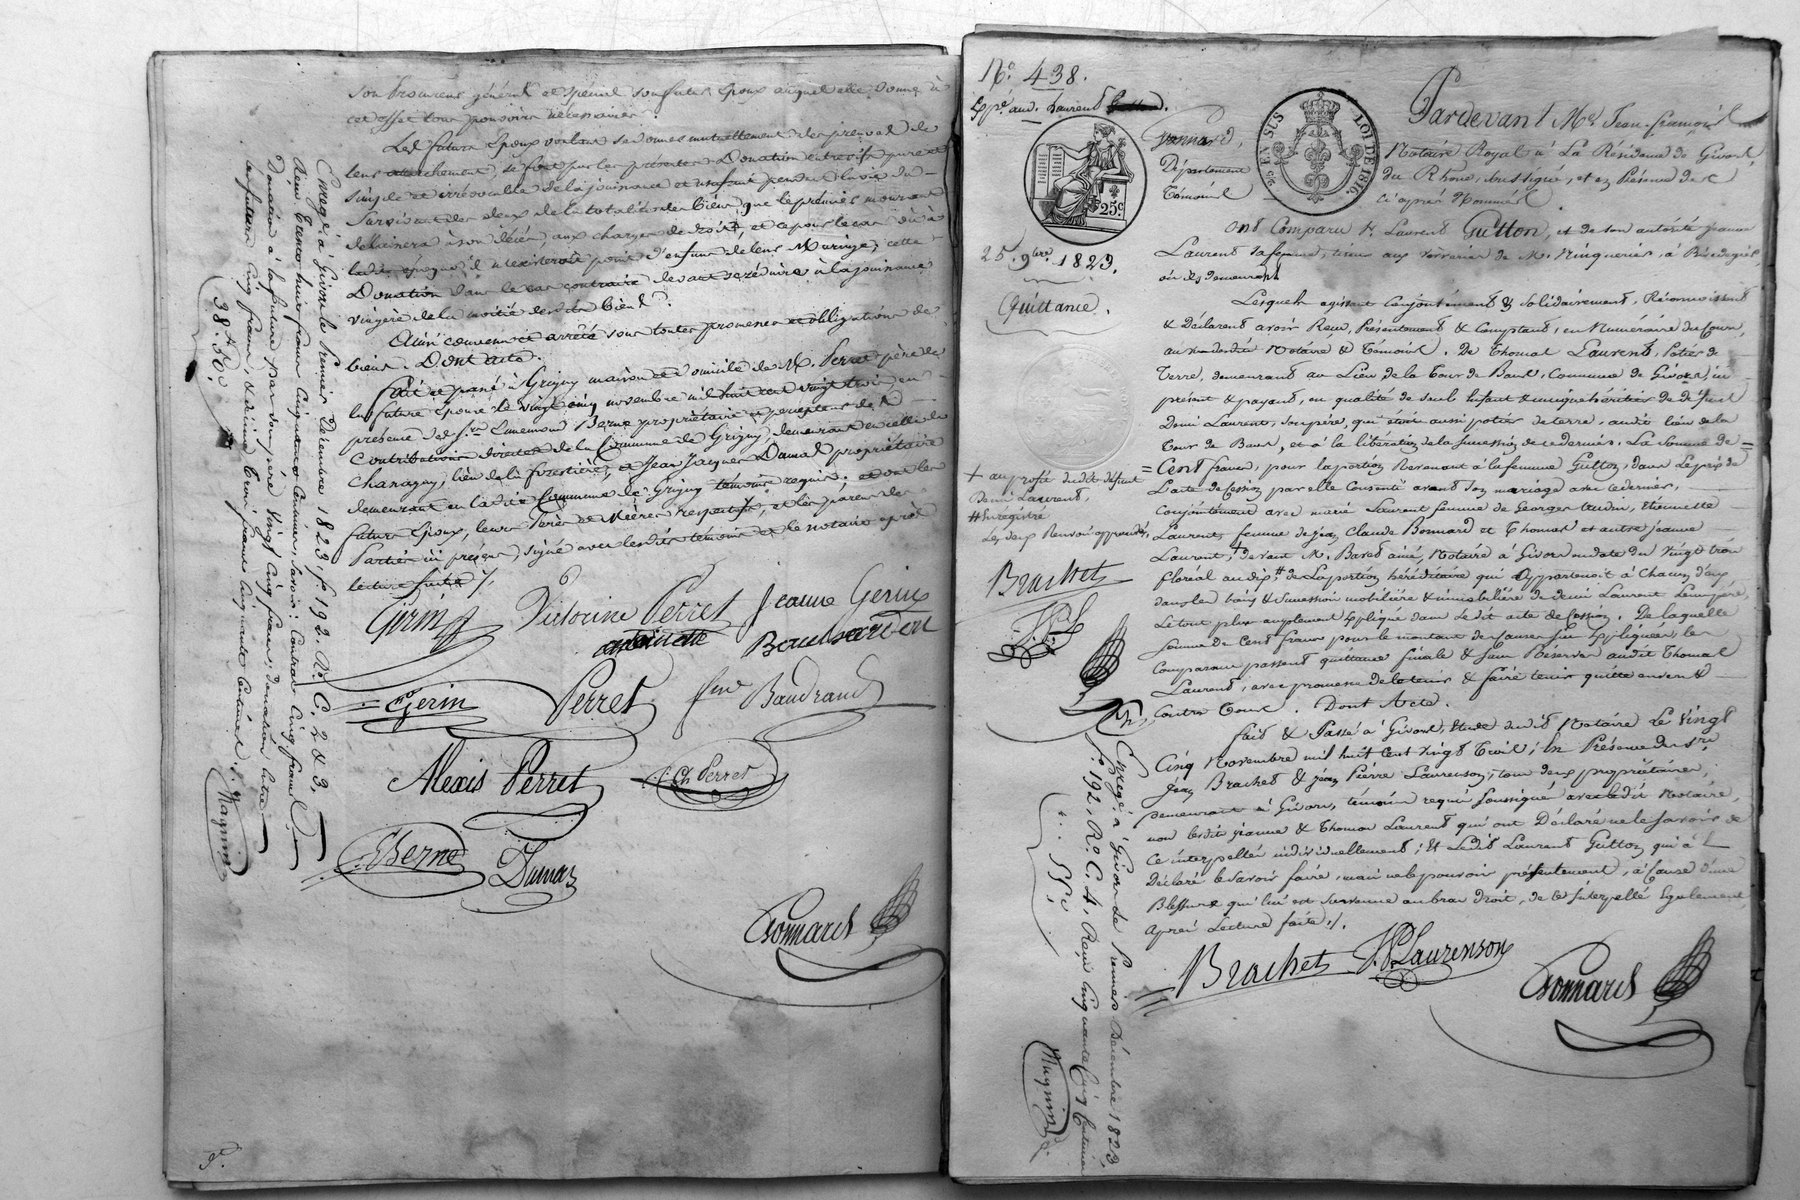 son Procureur général et spécial son futur Epoux auquel elle donne à
cet effet tous pouvoirs nécessaires.
Les futurs Epoux voulant se donner mutuellement des preuves de
leur attachement, se font par les présentes Donation entrevifs pure et
simple et irrévocable de la jouissance et usufruit pendant la vie du
Survivant des deux de la totalité des biens que le premier mourant
délaissera à son décès, aux charges de droit, et ce pour le cas où à
ladite époque il n'existeroit point d'enfans de leur Mariage; cette
Donation dans le cas contraire devant se réduire à la jouissance
viagère de la moitié desdits biens.
Ainsi convenu et arrêté sous toutes promesses et obligations de
biens. Dont Acte.
Fait et passé à Grigny maison et domicile de M. Perret père de
la future épouse le vingt cinq novembre mil huit cent vingt trois, en
présence des Srs Berne propriétaire et percepteur des
Contributions directes de la Commune de Grigny, demeurant en celle de
Chanagny, lieu de la forestière, et Jean Jacques Dumas propriétaire
demeurant en ladite Commune de Grigny témoins requis; et ont les
futurs Epoux, leurs Pères et Mères respectifs, et les parens des
Parties ici présens, signé avec lesdits témoins et le notaire après
lecture faite ./.
Girin Victorine Perret Jeanne Gerin
Gerin Perret fme Baudrand
Alexis Perret Ch Perret
C Berne
Dumas
Bonnard
Enregé à Givors le Premier Décembre 1823, fo 192. Ro C. 2 & 3,
Reçu trente huit francs cinquante centimes, savoir: Contrat cinq francs,
Donation à la future par son père vingt cinq francs, donation entre
les futurs cinq francs, et dixième trois francs cinquante Centimes.
38 f. 50 c.
Magnin
No. 438.
Expé. aud. Laurent
25 c
25. 9bre. 1823.
Quittance.
LOI DE 1816.
Pardevant Me. Jean-françois
Bonnard, Notaire Royal à La Résidence de Givors,
Département du Rhône, soussigné, et en Présence des
Témoins ci après Nommés
Ont Comparu Sr. Laurent Gutton, et de son autorité jeanne
Laurent sa femme, à
où ils demeurent
Lesquels agissant Conjointement & Solidairement, Reconnoissent
& Déclarent avoir Reçu, Présentement & Comptant, en Numéraire du Cours,
au vu desdits Notaire & Témoins. De Thomas Laurent, Potier de
Terre, demeurant au Lieu de la Tour de Bans, Commune de Givors, ici
présent & payant, en qualité de seul Enfant & unique héritier de défunt
Demi Laurent, son père, qui étoit aussi potier de terre, audit lieu de la
Tour de Bans, et à la libération de la succession de ce dernier. La somme de
Cent francs, pour la portion Revenant à la femme Gutton, dans Le prix de
L'acte de Cession par elle Consenti avant son mariage avec ce dernier,
Conjointement avec marie Laurent femme de Georges Audin, Etiennette
Laurent, femme de jean Claude Bonnard et Thomas et autre jeanne
Laurent, + devant M. Barod ainé, Notaire à Givors en date du vingt trois
floréal an dix, # de La portion héréditaire qui appartenoit à Chacun d'eux
dans les biens & Succession mobilière & immobilière de demi Laurent Leur père,
Le tout plus amplement Expliqué dans Ledit acte de Cession. De laquelle
Somme de Cent francs pour le montant des causes sus Expliquées, les
Comparans passent quittance finale & sans Réserve audit Thomas
Laurent, avec promesse de le tenir & faire tenir quitte envers &
Contre Tous. Dont Acte.
fait & Passé à Givors, Etude dudit Notaire Le vingt
Cinq Novembre mil huit Cent vingt trois; En Présence des Srs
Jean Brachet & jean Pierre Laurenson, tous deux propriétaires,
demeurant à Givors, témoins requis soussignés avec ledit Notaire,
non lesdits jeanne & Thomas Laurent qui ont Déclaré ne le savoir de
Ce interpellés individuellement; Et Ledit Laurent Gutton qui a
Déclaré le savoir faire, mais ne le pouvoir présentement, à Cause d'une
Blessure qui lui est survenue au bras Droit, de ce Interpellé Egalement
Après Lecture faite ./.
Brachet J. P. Laurenson
Bonnard
+ au profit dudit défunt
Demi Laurent,
# Enregistré
Les deux Renvois approuvés
Brachet
J P L
Enregé à Givors Le Premier Décembre 1823,
fo. 192, Ro. C. 4, Reçu Cinquante Cinq Centimes
55 c
Magnin